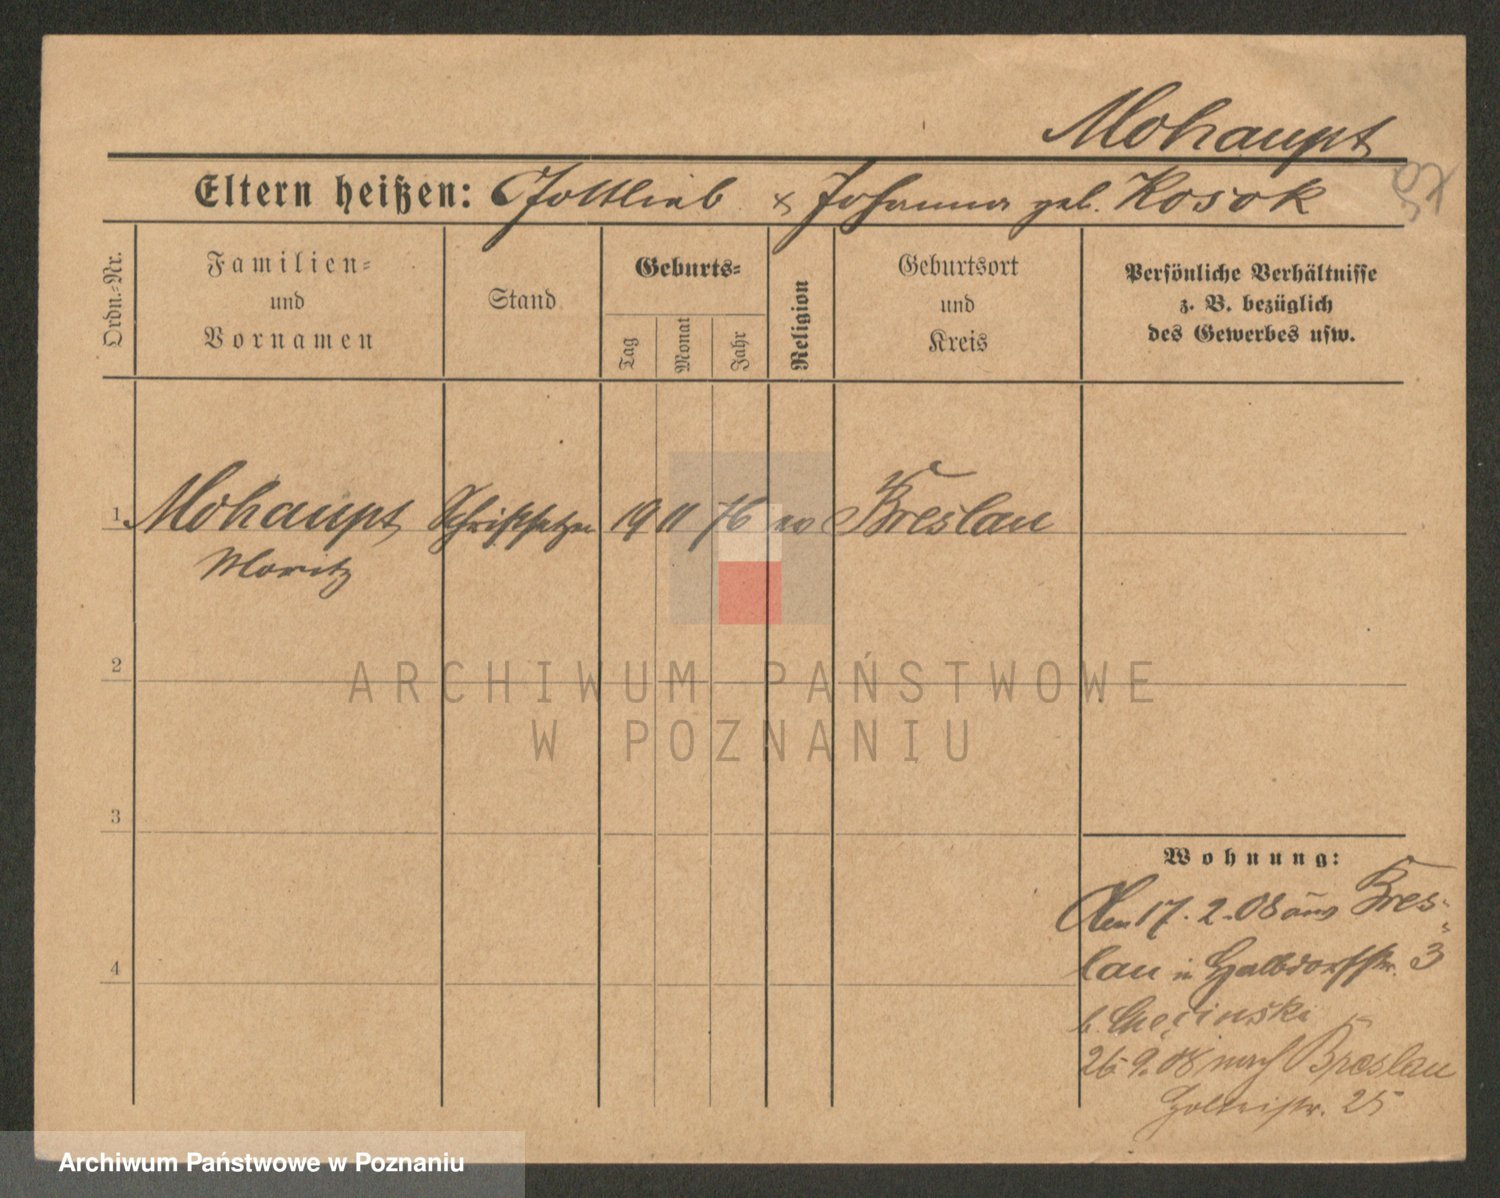 Mohaupt
Eltern heißen: Gottlieb & Johanna geb. Kosok
Ordn.-Nr.
Familien-
und
Vornamen
Stand
Geburts-
Tag
Monat
Jahr
Religion
Geburtsort
und
Kreis
Persönliche Verhältnisse
z. B. bezüglich
des Gewerbes usw.
1 Mohaupt Schriftsetzer 19 11 76 ev Breslau
Moritz
2
ARCHIWUM PAŃSTWOWE
W POZNANIU
3
Wohnung:
Den 17. 2. 08 aus Bres-
lau in Halbdorfstr. 3
b. Chęcinski
4
26 9. 08 nach Breslau
25
Archiwum Państwowe w Poznaniu